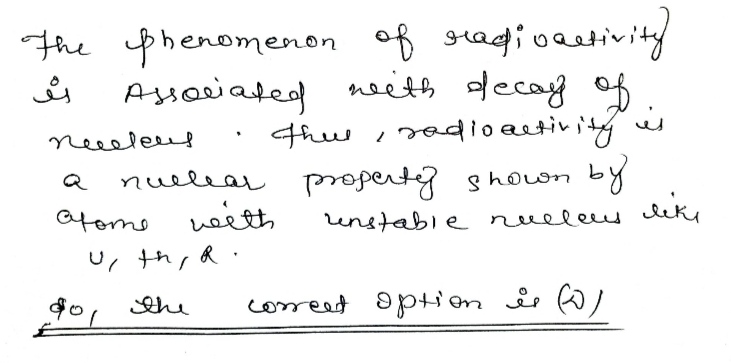 The phenomenon of radioactivity
is Associated with decay of
nucleus. Thus, radioactivity is
a nuclear property shown by
atoms with unstable nucleus like
U, th, R.
So, the correct option is (2)